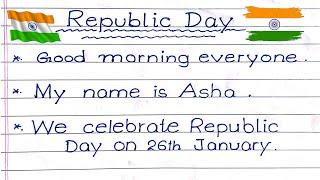 Republic Day
* Good morning everyone.
* My name is Asha.
* We celebrate Republic
Day on 26th January.